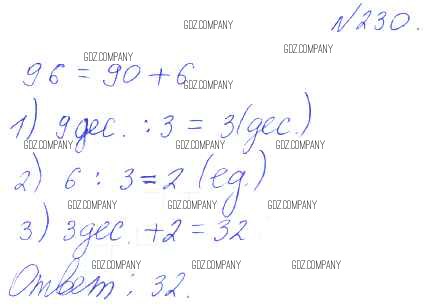 GDZ.COMPANY №230.
GDZ.COMPANY GDZ.COMPANY
96 = 90 + 6
GDZ.COMPANY
1) 9 дес. : 3 = 3 (дес.)
GDZ.COMPANY GDZ.COMPANY GDZ.COMPANY
2) 6 : 3 = 2 (ед.)
GDZ.COMPANY GDZ.COMPANY GDZ.COMPANY
3) 3 дес. + 2 = 32
GDZ.COMPANY GDZ.COMPANY GDZ.COMPANY
Ответ: 32.